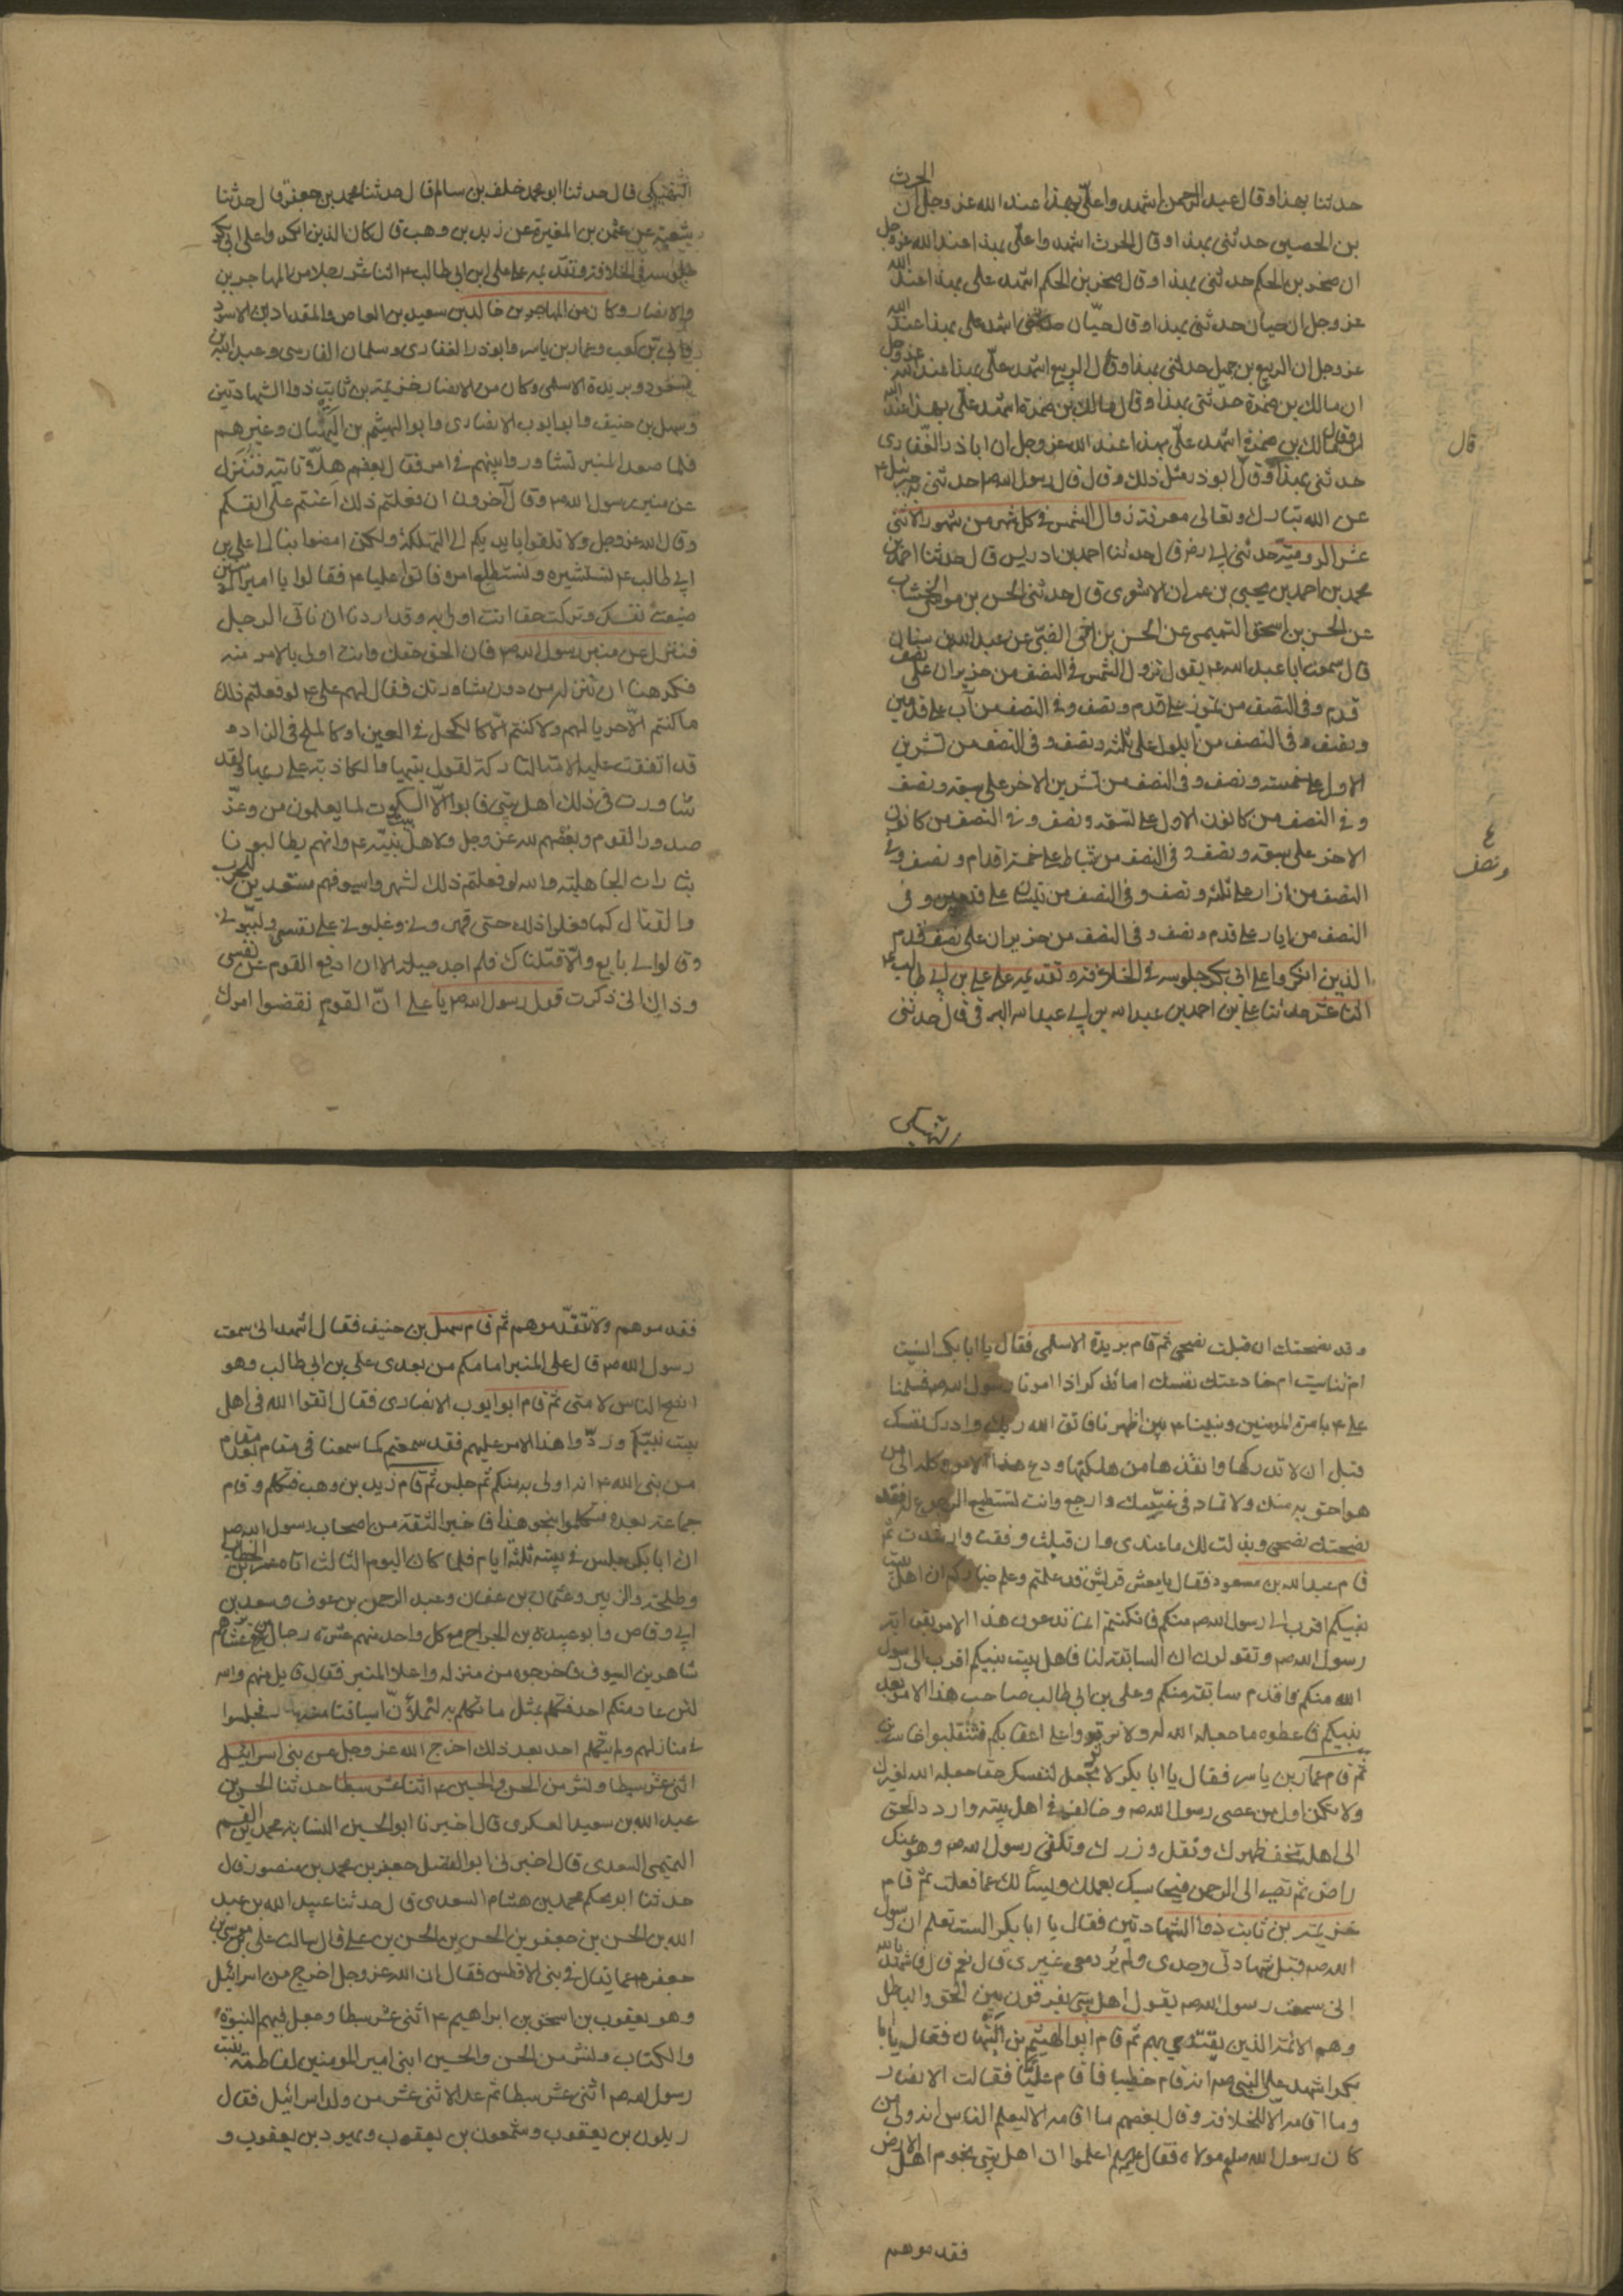 الحرث
حدثنا بهذا وقال عبد الرحمن اشهد واعلى بهذا عند الله عز وجل ان
بن الحصين حدثنى بهذا وقال الحرث اشهد واعلى بهذا عند الله عز وجل
ان صخر بن الحكم حدثنى بهذا وقال صخر بن الحكم اشهد على بهذا عند الله
عز وجل ان حيان حدثنى بهذا وقال حيّان اشهد على بهذا عند الله
عز وجل ان الربيع بن جميل حدثنى بهذا وقال الربيع اشهد علىّ بهذا عند الله عز وجل
ان مالك بن ضمرة حدثنى بهذا وقال مالك بن ضمرة اشهد علىّ بهذا عند الله
مالك بن ضمرة اشهد علىّ بهذا عند الله عز وجل ان ابا ذر الغفارى
قال
حدثنى بهذا وقال ابوذر مثل ذلك وقال قال رسول الله ص حدثنى به جبرئيل ع
عن الله تبارك وتعالى معرفة زوال الشمس فى كل شهر من شهور الاثنى
عشر الرومية حدثنى ابى رض قال حدثنا احمد بن ادريس قال حدثنا احمد بن
محمد بن احمد بن يحيى بن عمران الاشعرى قال حدثنى الحسن بن موسى الخشاب
عن الحسن بن اسحق التميمى عن الحسن بن اخى الضبّى عن عبد الله بن سنان
قال سمعت ابا عبد الله ع يقول تزول الشمس فى النصف من حزيران على نصف
قدم وفى النصف من تموز على قدم ونصف وفى النصف من آب على قدمين
ونصف وفى النصف من ايلول على ثلثة ونصف وفى النصف من تشرين
الاول على خمسة ونصف وفى النصف من تشرين الاخر على سبعة ونصف
وفى النصف من كانون الاول على تسعة ونصف وفى النصف من كانون
الاخر على سبعة ونصف وفى النصف من شباط على خمسة اقدام ونصف وفى
٤
ونصف
النصف من اذار على ثلثة ونصف وفى النصف من نيسان على قدمين وفى
النصف من ايار على قدم ونصف وفى النصف من حزيران على نصف قدم
الذين انكروا على ابى بكر جلوسه فى الخلافة وتقديمه على على بن ابى طالب ع
اثنا عشر حدثنا على بن احمد بن عبد الله بن ابى عبد الله البرقى قال حدثنى
النهيكى
النهيكى قال حدثنا ابو محمد خلف بن سالم قال حدثنا محمد بن جعفر قال حدثنا
شعبة عن عثمن بن المغيرة عن زيد بن وهب قال كان الذين انكروا على ابى بكر
جلوسه فى الخلافة وتقدّمه على على ابن ابى طالب ع اثنا عشر رجلا من المهاجرين
والانصار وكان من المهاجرين خالد بن سعيد بن العاص والمقداد بن الاسود
وابىّ بن كعب وعمار بن ياسر وابو ذر الغفارى وسلمان الفارسى وعبد الله بن
مسعود وبريدة الاسلمى وكان من الانصار خزيمة بن ثابت ذو الشهادتين
وسهل بن حنيف وابو ايوب الانصارى وابو الهيثم بن التيّهان وغيرهم
فلما صعد المنبر تشاوروا بينهم فى امره فقال بعضهم هلّا ناتيه فننزله
عن منبر رسول الله ص وقال آخرون ان فعلتم ذلك اعنتم على انفسكم
وقال الله عز وجل ولا تلقوا بايديكم الى التهلكة ولكن امضوا بنا الى على بن
ابى طالب ع نستشيره ونستطلع امره فاتوا عليا ع فقالوا يا امير المؤمنين
ضيّعت نفسك وتركت حقا انت اولى به وقد اردنا ان ناتى الرجل
فننزله عن منبر رسول الله ص فان الحق حقك وانت اولى بالامر منه
فكرهنا ان ننزله من دون مشاورتك فقال لهم على ع لو فعلتم ذلك
ما كنتم الّا حربا لهم ولا كنتم الّا كالكحل فى العين او كالملح فى الزاد
قد اتفقت عليه الامة التاركة لقول نبيها والكاذبة على ربها ولقد
شاورت فى ذلك اهل بيتى فابوا الّا السكوت لما يعلمون من وغر
صدور القوم وبغضهم لله عز وجل ولاهل بيت نبيّه ع وانهم يطالبونا
بثارات الجاهلية والله لو فعلتم ذلك لشهروا سيوفهم مستعدين للحرب
والقتال كما فعلوا ذلك حتى قهرونى وغلبونى على نفسى ولبّبونى
وقالوا لى بايع والّا قتلناك فلم اجد حيلة الا ان ادفع القوم عن نفسى
وذاك انى ذكرت قول رسول الله ص يا على انّ القوم نقضوا امرك
وقد نصحتك ان قبلت نصحى ثم قام بريدة الاسلمى فقال يا ابا بكر انسيت
ام تناسيت ام خادعتك نفسك اما تذكر اذا امرنا رسول الله ص فسلمنا
على ع بامرة المومنين ونبينا ع بين اظهرنا فاتق الله ربك وادرك نفسك
قبل ان لا تدركها وانقذها من هلكتها ودع هذا الامر وكله الى من
هو احق به منك ولا تماد فى غيّك وارجع وانت تستطيع الرجوع فقد
نصحتك نصحى وبذلت لك ما عندى وان قبلت وفقت وارشدت ثم
قام عبد الله بن مسعود فقال يا معشر قريش قد علمتم وعلم خياركم ان اهل بيت
نبيكم اقرب الى رسول الله ص منكم فان كنتم انما تدعون هذا الامر بقرابة
رسول الله ص وتقولون ان السابقة لنا فاهل بيت نبيكم اقرب الى رسول
الله منكم واقدم سابقة منكم وعلى بن ابى طالب صاحب هذا الامر بعد
نبيكم فاعطوه ما جعله الله له ولا ترتدوا على اعقابكم فتنقلبوا خاسرين
ثم قام عمار بن ياسر فقال يا ابا بكر لا تجعل لنفسك حقا جعله الله لغيرك
ولا تكن اول من عصى رسول الله ص وخالفه فى اهل بيته واردد الحق
الى اهله تخف ظهرك وتقل وزرك وتلقى رسول الله ص وهو عنك
راض ثم تصير الى الرحمن فيحاسبك بعملك ويسألك عما فعلت ثم قام
خزيمة بن ثابت ذو الشهادتين فقال يا ابا بكر الست تعلم ان رسول
الله ص قبل شهادتى وحدى ولم يرد معى غيرى قال نعم قال فاشهد بالله
انى سمعت رسول الله ص يقول اهل بيتى يفرقون بين الحق والباطل
وهم الائمة الذين يقتدى بهم ثم قام ابو الهيثم بن التيهان فقال يا ابا
بكر اشهد على النبى ص انه قام خطيبا فاقام عليّا فقالت الانصار
وما اقامه الّا للخلافة وقال بعضهم ما اقامه الا ليعلم الناس انه ولى من
كان رسول الله صلعم مولاه فقال عليهم اعلموا ان اهل بيتى نجوم اهل الارض
فقدموهم
فقدموهم ولا تقدّموهم ثم قام سهل بن حنيف فقال اشهد انى سمعت
رسول الله ص قال على المنبر امامكم من بعدى على بن ابى طالب وهو
انصح الناس لامتى ثم قام ابو ايوب الانصارى فقال اتقوا الله فى اهل
بيت نبيّكم وردّوا هذا الامر عليهم فقد سمعتم كما سمعنا فى مقام بعد مقام
من نبى الله ع انه اولى به منكم ثم جلس ثم قام زيد بن وهب فتكلم وقام
جماعة بعده فتكلموا بنحو هذا فاخبر الثقة من اصحاب رسول الله ص
ان ابا بكر جلس فى بيته ثلثة ايام فلما كان اليوم الثالث اتاه عمر بن الخطاب
وطلحة والزبير وعثمان بن عفان وعبد الرحمن بن عوف وسعد بن
ابى وقاص وابو عبيدة بن الجراح مع كل واحد منهم عشرة رجال من عشايرهم
شاهرين السيوف فاخرجوه من منزله واعلا المنبر فقال قايل منهم والله
لئن عاد منكم احد فتكلم بمثل ما تكلم به لنملأنّ اسيافنا منه فجلسوا
فى منازلهم ولم يتكلم احد بعد ذلك اخرج الله عز وجل من بنى اسرائيل
اثنى عشر سبطا ونشر من الحسن والحسين ع اثنا عشر سبطا حدثنا الحسن بن
عبد الله بن سعيد العسكرى قال اخبرنا ابو الحسين النسابة محمد بن القسم
التميمى السعدى قال اخبرنى ابو الفضل جعفر بن محمد بن منصور قال
حدثنا ابو محكم محمد بن هشام السعدى قال حدثنا عبيد الله بن عبد
الله بن الحسن بن جعفر بن الحسن بن الحسن بن على قال سالت على بن موسى بن
جعفر ع عما يقال فى بنى الافطس فقال ان الله عز وجل اخرج من اسرائيل
وهو يعقوب بن اسحق بن ابراهيم ع اثنى عشر سبطا وجعل فيهم النبوة
والكتاب ونشر من الحسن والحسين ابنى امير المومنين لفاطمة بنت
رسول الله ص اثنى عشر سبطا ثم عد الاثنى عشر من ولد اسرائيل فقال
ريلون بن يعقوب وشمعون بن يعقوب ويهود بن يعقوب و